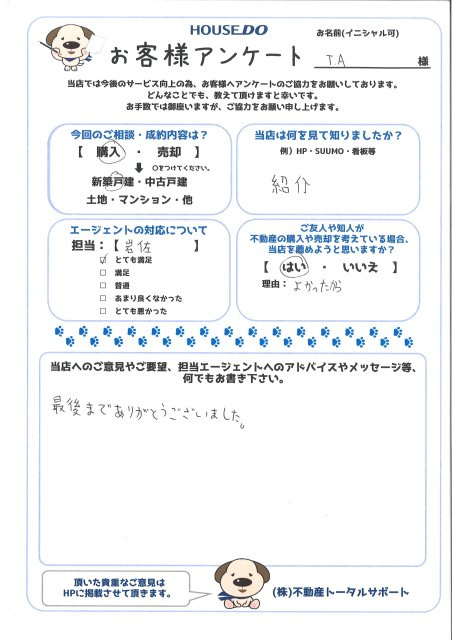 HOUSEDO
お名前(イニシャル可)
お客様アンケート TA 様
当店では今後のサービス向上の為、お客様へアンケートのご協力をお願いしております。
どんなことでも、教えて頂けますと幸いです。
お手数では御座いますが、ご協力をお願い申し上げます。
今回のご相談・成約内容は?
【 購入 ・ 売却 】
○をつけてください。
新築戸建・中古戸建
土地・マンション・他
当店は何を見て知りましたか?
例）HP・SUUMO・看板等
紹介
エージェントの対応について
担当：【 岩佐 】
☑ とても満足
□ 満足
□ 普通
□ あまり良くなかった
□ とても悪かった
ご友人や知人が
不動産の購入や売却を考えている場合、
当店を薦めようと思いますか?
【 はい ・ いいえ 】
理由： よかったから
当店へのご意見やご要望、担当エージェントへのアドバイスやメッセージ等、
何でもお書き下さい。
最後までありがとうございました。
頂いた貴重なご意見は
HPに掲載させて頂きます。
(株)不動産トータルサポート